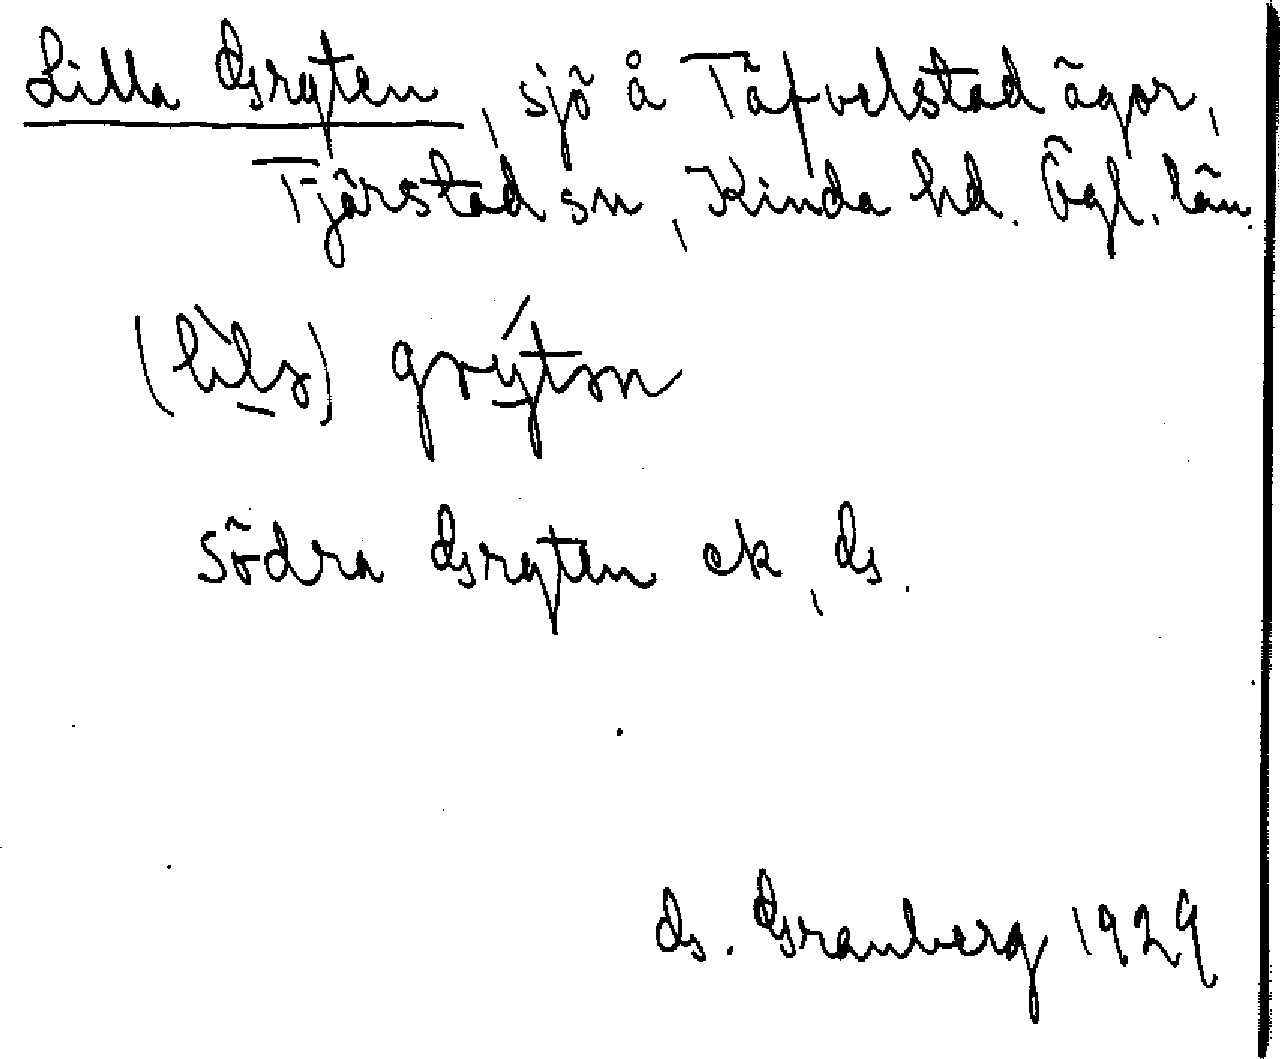 Lilla Gryten, sjö å Täfvelstad ägor,
Tjärstad sn, Kinda hd. Ögl. län.
södra Gryten ek, G.
G. Granberg 1929